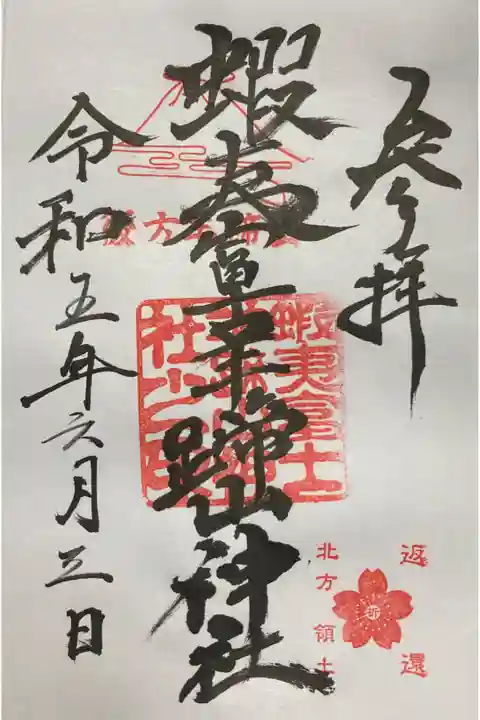 参拝
蝦夷富士羊蹄山神社
令和五年六月三日
蝦夷富士
羊蹄山神
社之印
返還
祈
北方領土